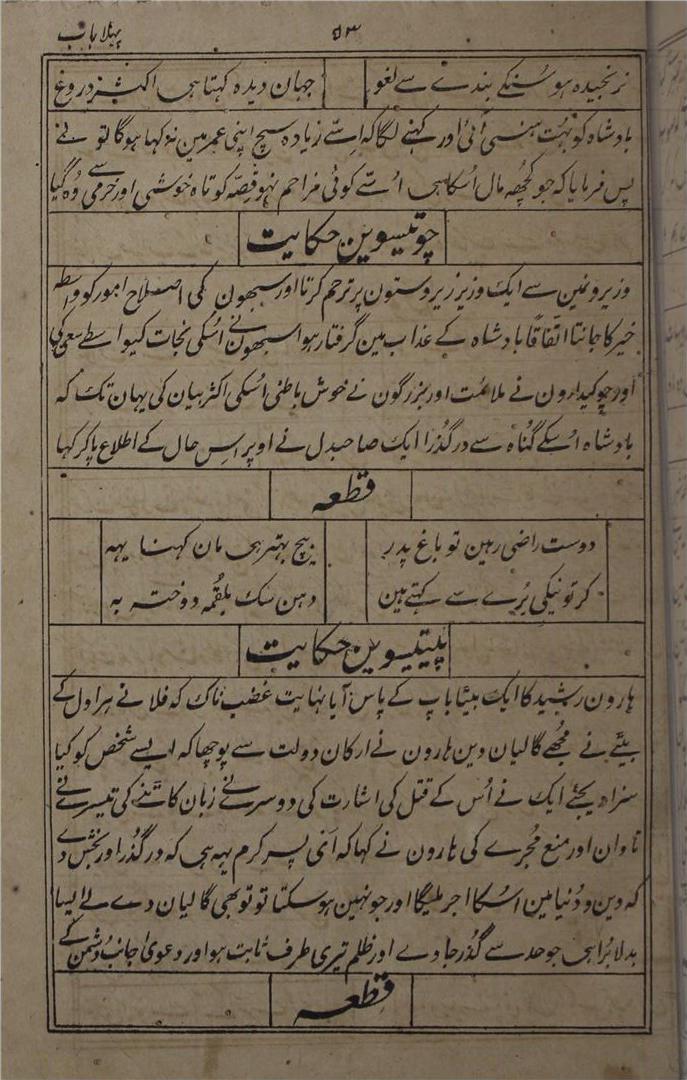 پہلا باب ۵۳
نرنجیدہ ہو سُنکے بندے سے لغو جہان دیدہ کہتا ہی اکثر دروغ
بادشاہ کو بہُت ہنسی آئی اور کہنے لگا کہ اِسّے زیادہ سچ اپنی عمر مین نہ کہا ہوگا تو نے
پس فرمایا کہ جو کچھہ مال اُسکا ہی اُسّے کوئی مزاحم نہو قصّہ کوتاہ خوشی اور خرمی سے وُہ گیا
چوتیسوین حکایت
وزیرونمین سے ایک وزیر زیردستون پر ترحم کرتا اور سبھون کی اصلاح امور کو واسطہ
خیر کا جانتا اتّفاقاً بادشاہ کے عذاب مین گرفتار ہوا سبھون نے اُسکی نجات کیواسطے سعی کی
اور چوکیدارون نے ملائمت اور بزرگون نے خوش باطنی اُسکی اکثر بیان کی یہان تک کہ
بادشاہ اُسکے گُناہ سے درگُذرا ایک صاحبدل نے اوپر اِس حال کے اطلاع پا کر کہا
قطعہ
دوست راضی رہین تو باغ پدر بیچ بہتر ہی مان کہنا یہہ
کر تو نیکی بُرے سے کہتے ہین دہن سگ بلقُمہ دوختہ بہ
پینتیسوین حکایت
ہارون رشید کا ایک بیٹا باپ کے پاس آیا نہایت غضب ناک کہ فلانے ہراول کے
بیٹے نے مُجھے گالیان دین ہارون نے ارکان دولت سے پوچھا کہ ایسے شخص کو کیا
سزا دیجئے ایک نے اُس کے قتل کی اشارت کی دوسرے نے زبان کاٹنے کی تیسرے نے
تاوان اور منع مُجرے کی ہارون نے کہا کہ ای پسر کرم یہہ ہی کہ درگُذر اور بخش دے
کہ دین و دُنیا مین اُسکا اجر ملیگا اور جو نہین ہو سکتا تو تو بھی گالیان دے لے ایسا
بدلا بُرا ہی جو حد سے گُذر جاوے اور ظلم تیری طرف ثابت ہو اور دعویٰ جانب دُشمن کے
قطعہ